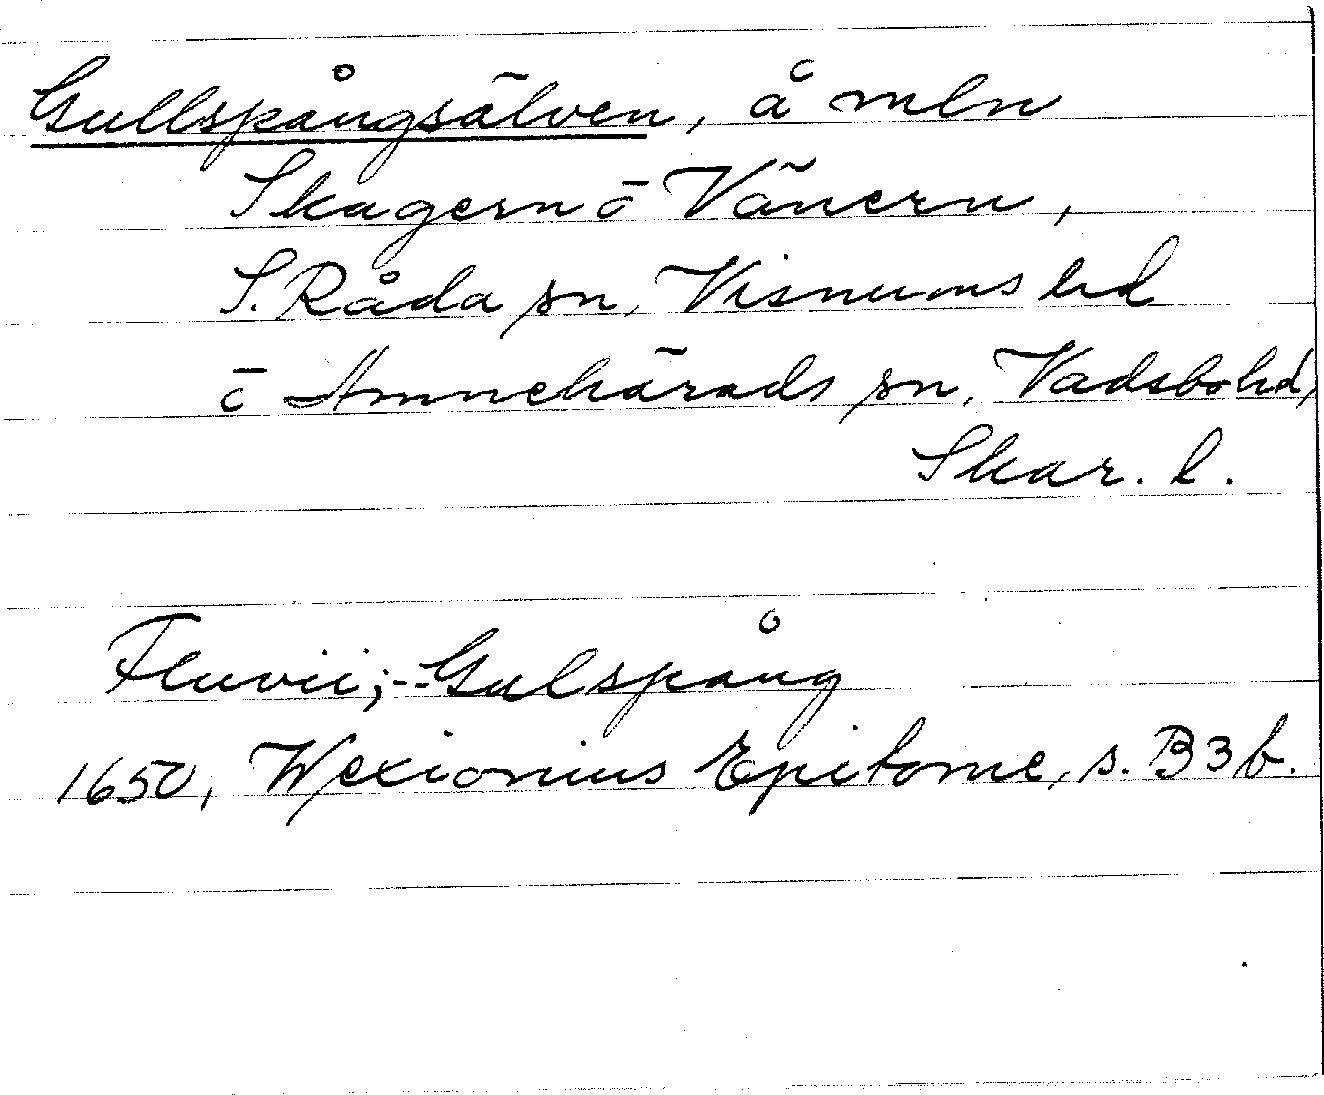 Gullspångsälven, å mln
Skagern ō Vänern,
S. Råda sn, Visnums hd
ō Amnehärads sn, Vadsbo hd,
Skar. l.
Fluvii; -- Gulspång
1650, Wexionius Epitome, s. B3b.